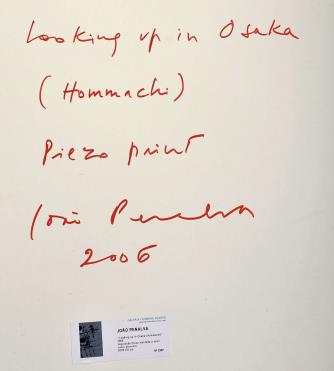 Looking up in Osaka
(Hommachi)
Piezo print
João Penalva
2006
JOÃO PENALVA
2006